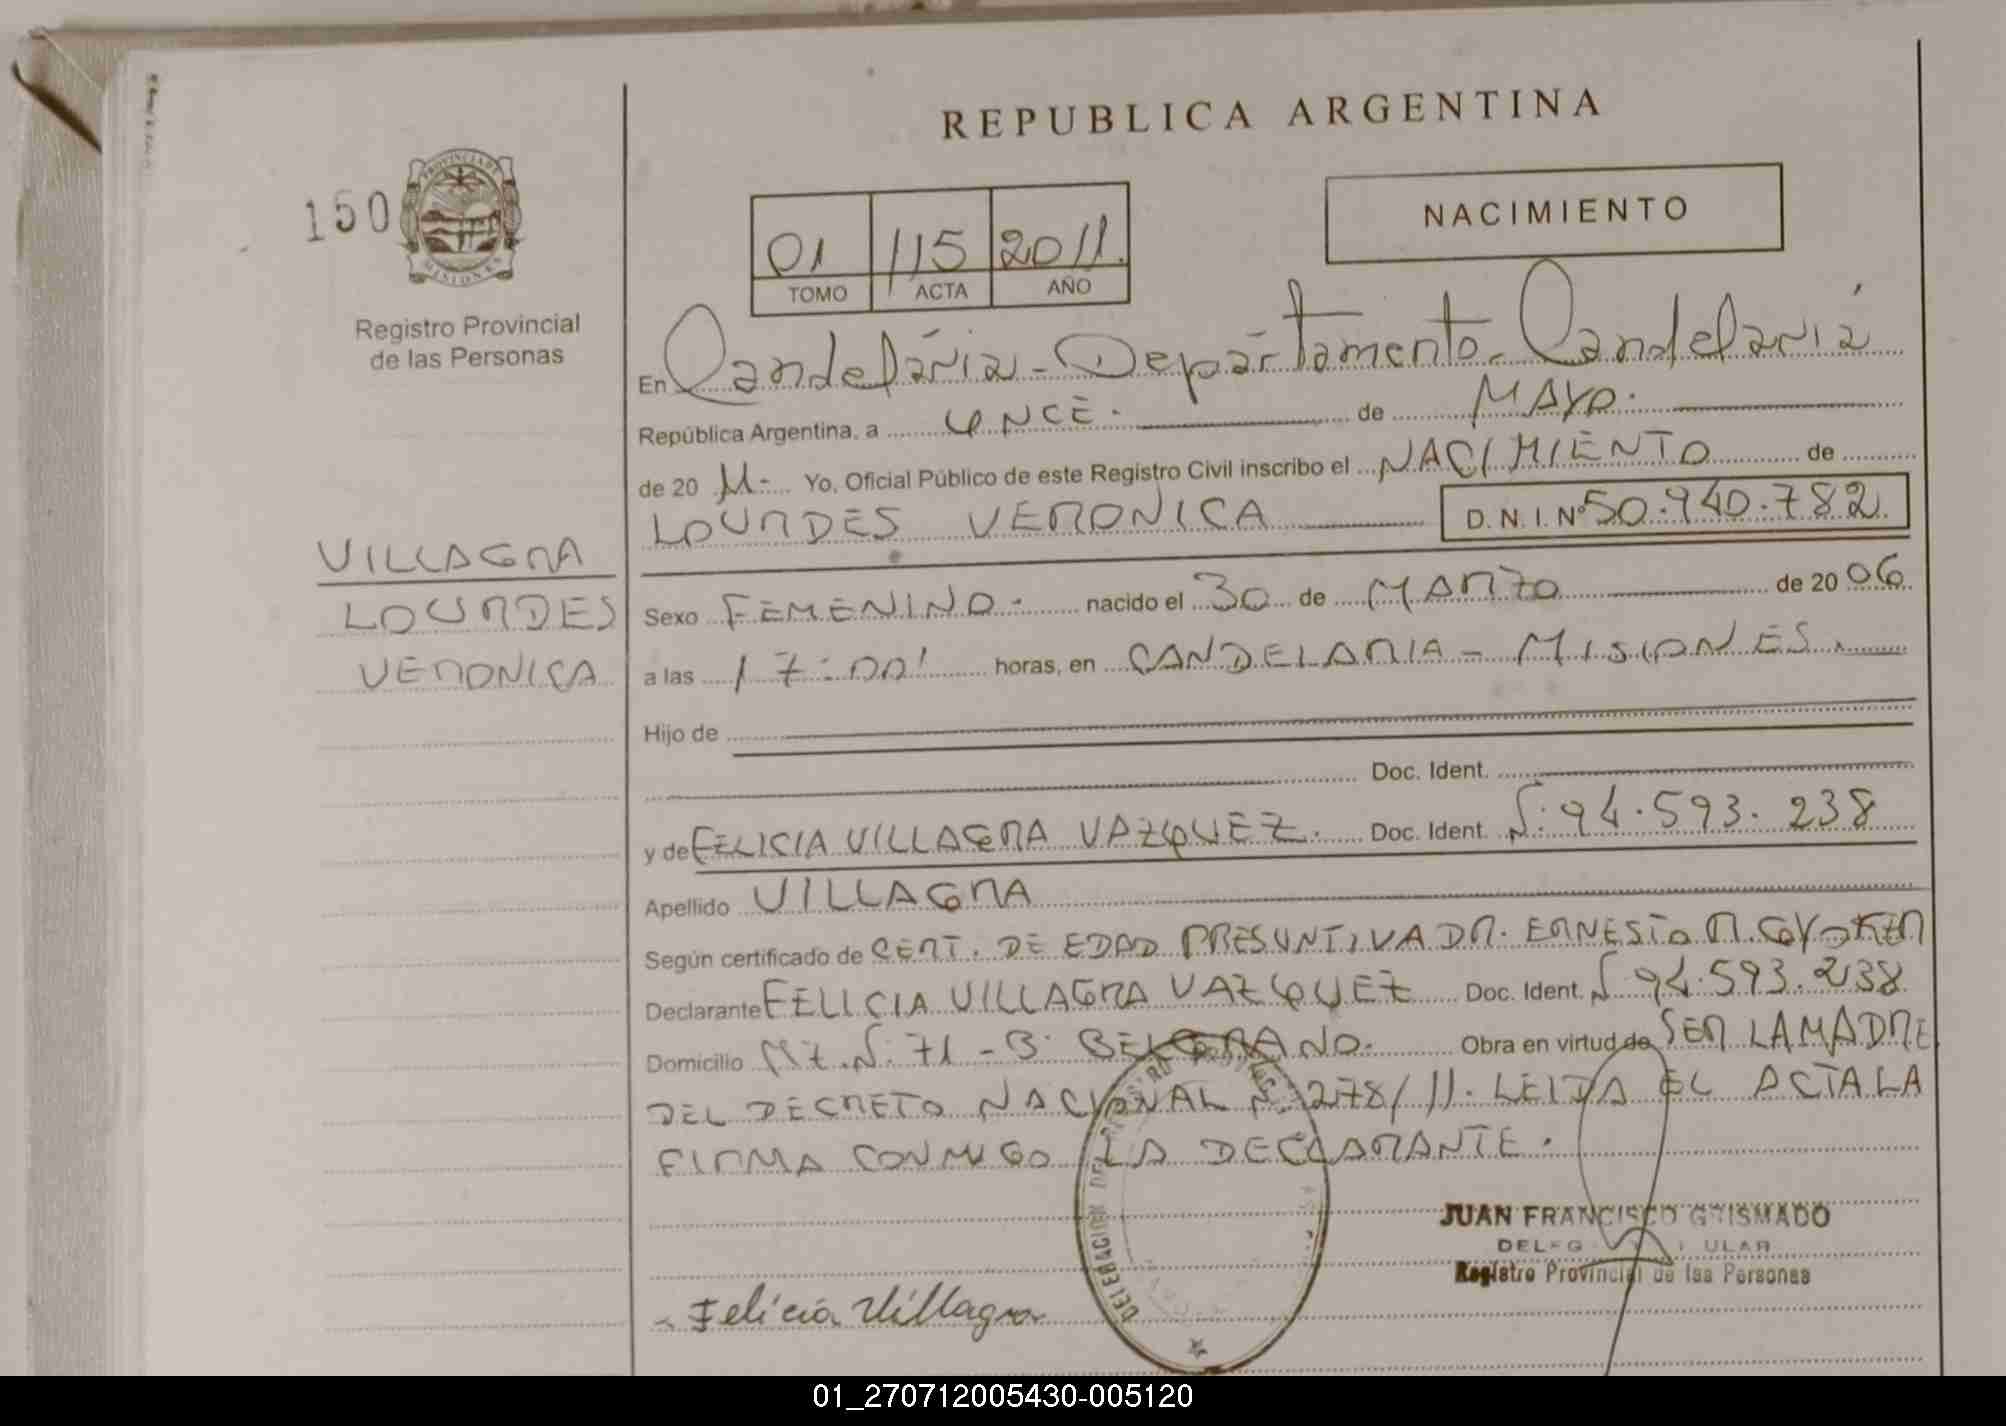 REPUBLICA ARGENTINA
150
PROVINCIA DE
MISIONES
Registro Provincial
de las Personas
01 115 2011.
TOMO ACTA AÑO
NACIMIENTO
En Candelaria - Departamento Candelaria
República Argentina, a ONCE. de MAYO.
de 20 11.- Yo, Oficial Público de este Registro Civil inscribo el NACIMIENTO de
LOURDES VERONICA D.N.I. Nº 50.940.782
VILLAGRA
LOURDES
VERONICA
Sexo FEMENINO. nacido el 30 de MARZO de 20 06
a las 17:00' horas, en CANDELARIA - MISIONES.
Hijo de
Doc. Ident.
y de FELICIA VILLAGRA VAZQUEZ. Doc. Ident. N. 94.593.238
Apellido VILLAGRA
Según certificado de CERT. DE EDAD PRESUNTIVA DR. ERNESTO R.
Declarante FELICIA VILLAGRA VAZQUEZ Doc. Ident. N 94.593.238
Domicilio MZ. N. 71 - B. BELGRANO. Obra en virtud de SER LA MADRE
DEL DECRETO NACIONAL N. 278/11. LEIDA EL ACTA LA
FIRMA CONMIGO LA DECLARANTE.
DELEGACION DEL REGISTRO
JUAN FRANCISCO
Registro Provincial de las Personas
Felicia Villagra
01_270712005430-005120